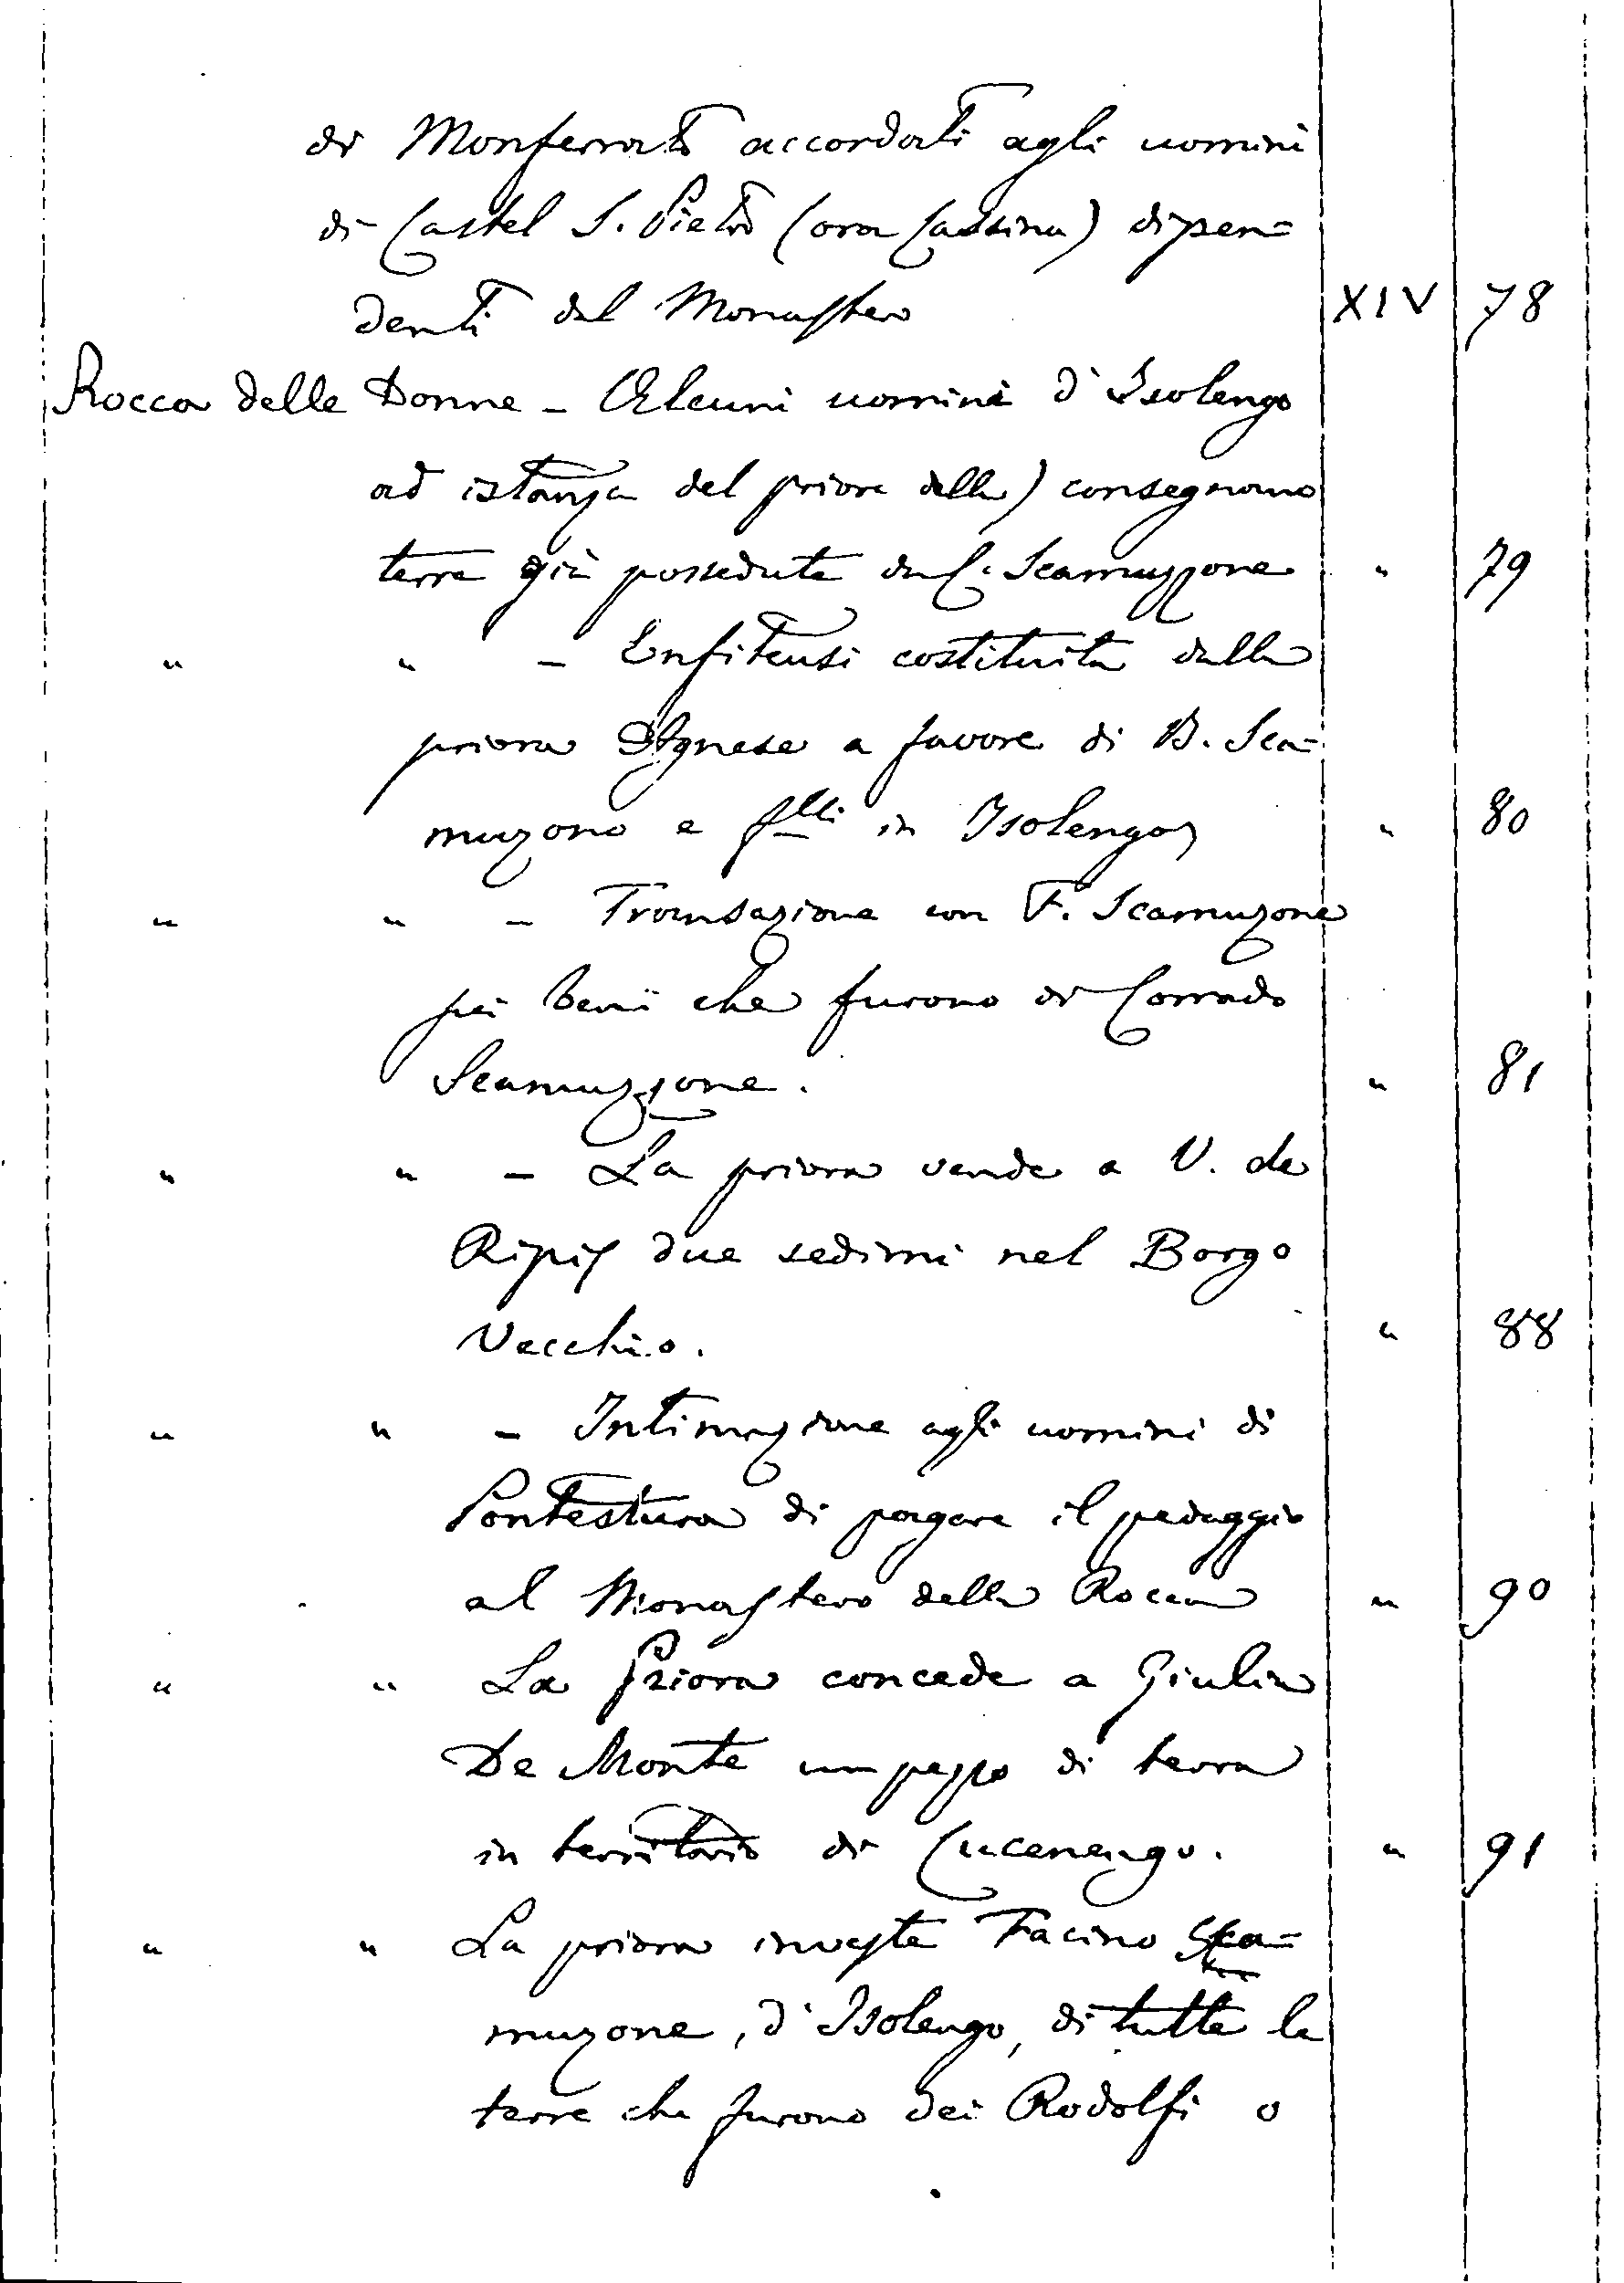 di Monferrato accordati agli uomini
di Castel S. Pietro (ora Cassina) dipen=
denti dal Monastero XIV 78
Rocca delle Donne - Alcuni uomini d'Isolengo
ad istanza del priore della) consegnano
terre già possedute da C. Scamuzzone " 79
" " - Enfiteusi costituita dalla
priora Agnese a favore di B. Sca=
muzono e flli in Isolengo " 80
" " - Transazione con F. Scamuzone
pei beni che furono di Corrado
Scamuzzone. " 81
" " - La priora vende a V. de
Ripis due sedimi nel Borgo
Vecchio. " 88
" " - Intimazione agli uomini di
Pontestura di pagare il pedaggio
al Monastero della Rocca " 90
" " La Priora concede a Giulin
De Monte un pezzo di terra
in territorio di Cucenengo. " 91
" " La priora investe Facino Sca=
muzone, d'Isolengo, di tutte le
terre che furono dei Rodolfi o